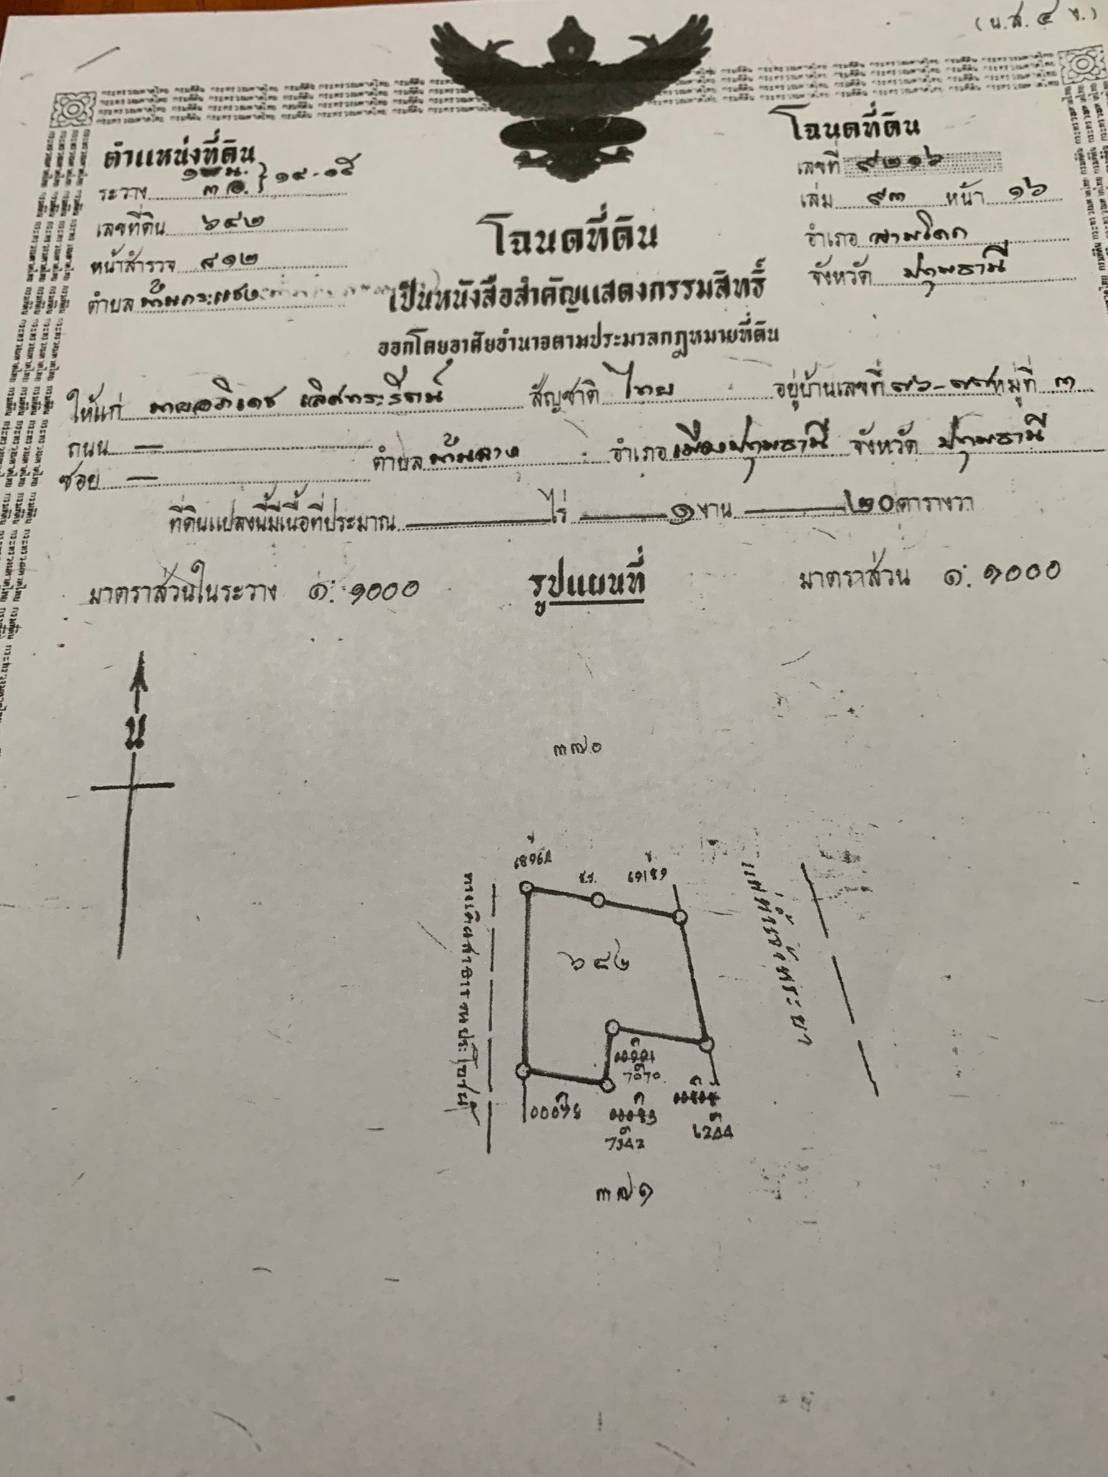 (น.ส. ๔ ข.)
ตำแหน่งที่ดิน
ระวาง ๓ อ. ๑๔-๑๕
เลขที่ดิน ๖๔๒
หน้าสำรวจ ๔๑๒
ตำบล บ้านกระแชง
โฉนดที่ดิน
เลขที่ ๙๒๑๖
เล่ม ๙๓ หน้า ๑๖
อำเภอ สามโคก
จังหวัด ปทุมธานี
โฉนดที่ดิน
เป็นหนังสือสำคัญแสดงกรรมสิทธิ์
ออกโดยอาศัยอำนาจตามประมวลกฎหมายที่ดิน
ให้แก่ นาย สัญชาติ ไทย อยู่บ้านเลขที่ หมู่ที่ ๓
ถนน —
ซอย — ตำบล บ้านฉาง อำเภอ เมืองปทุมธานี จังหวัด ปทุมธานี
ที่ดินแปลงนี้มีเนื้อที่ประมาณ — ไร่ — ๑ งาน — ๒๐ ตารางวา
มาตราส่วนในระวาง ๑: ๑๐๐๐
รูปแผนที่
มาตราส่วน ๑: ๑๐๐๐
น
๓๗๐
ทางเดินสาธารณประโยชน์
๖๔๒
แม่น้ำเจ้าพระยา
๓๗๑